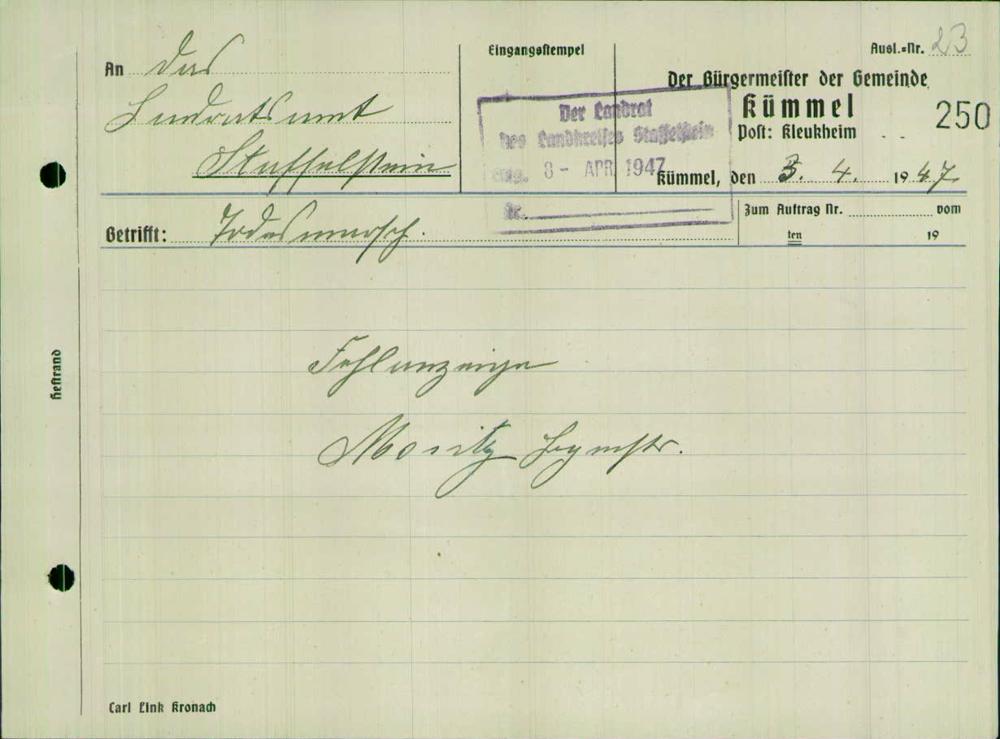 An das
Landratsamt
Staffelstein
Eingangsstempel
Der Landrat
des Landkreises Staffelstein
Eing. 8 - APR. 1947
Nr.
Ausl.-Nr. 23
Der Bürgermeister der Gemeinde
Kümmel
Post: Kleukheim
250
Kümmel, den 3. 4. 1947.
Betrifft: Todesmarsch.
Zum Auftrag Nr. vom
ten 19
Fehlanzeige
Moritz Bgmstr.
Heftrand
Carl Link Kronach